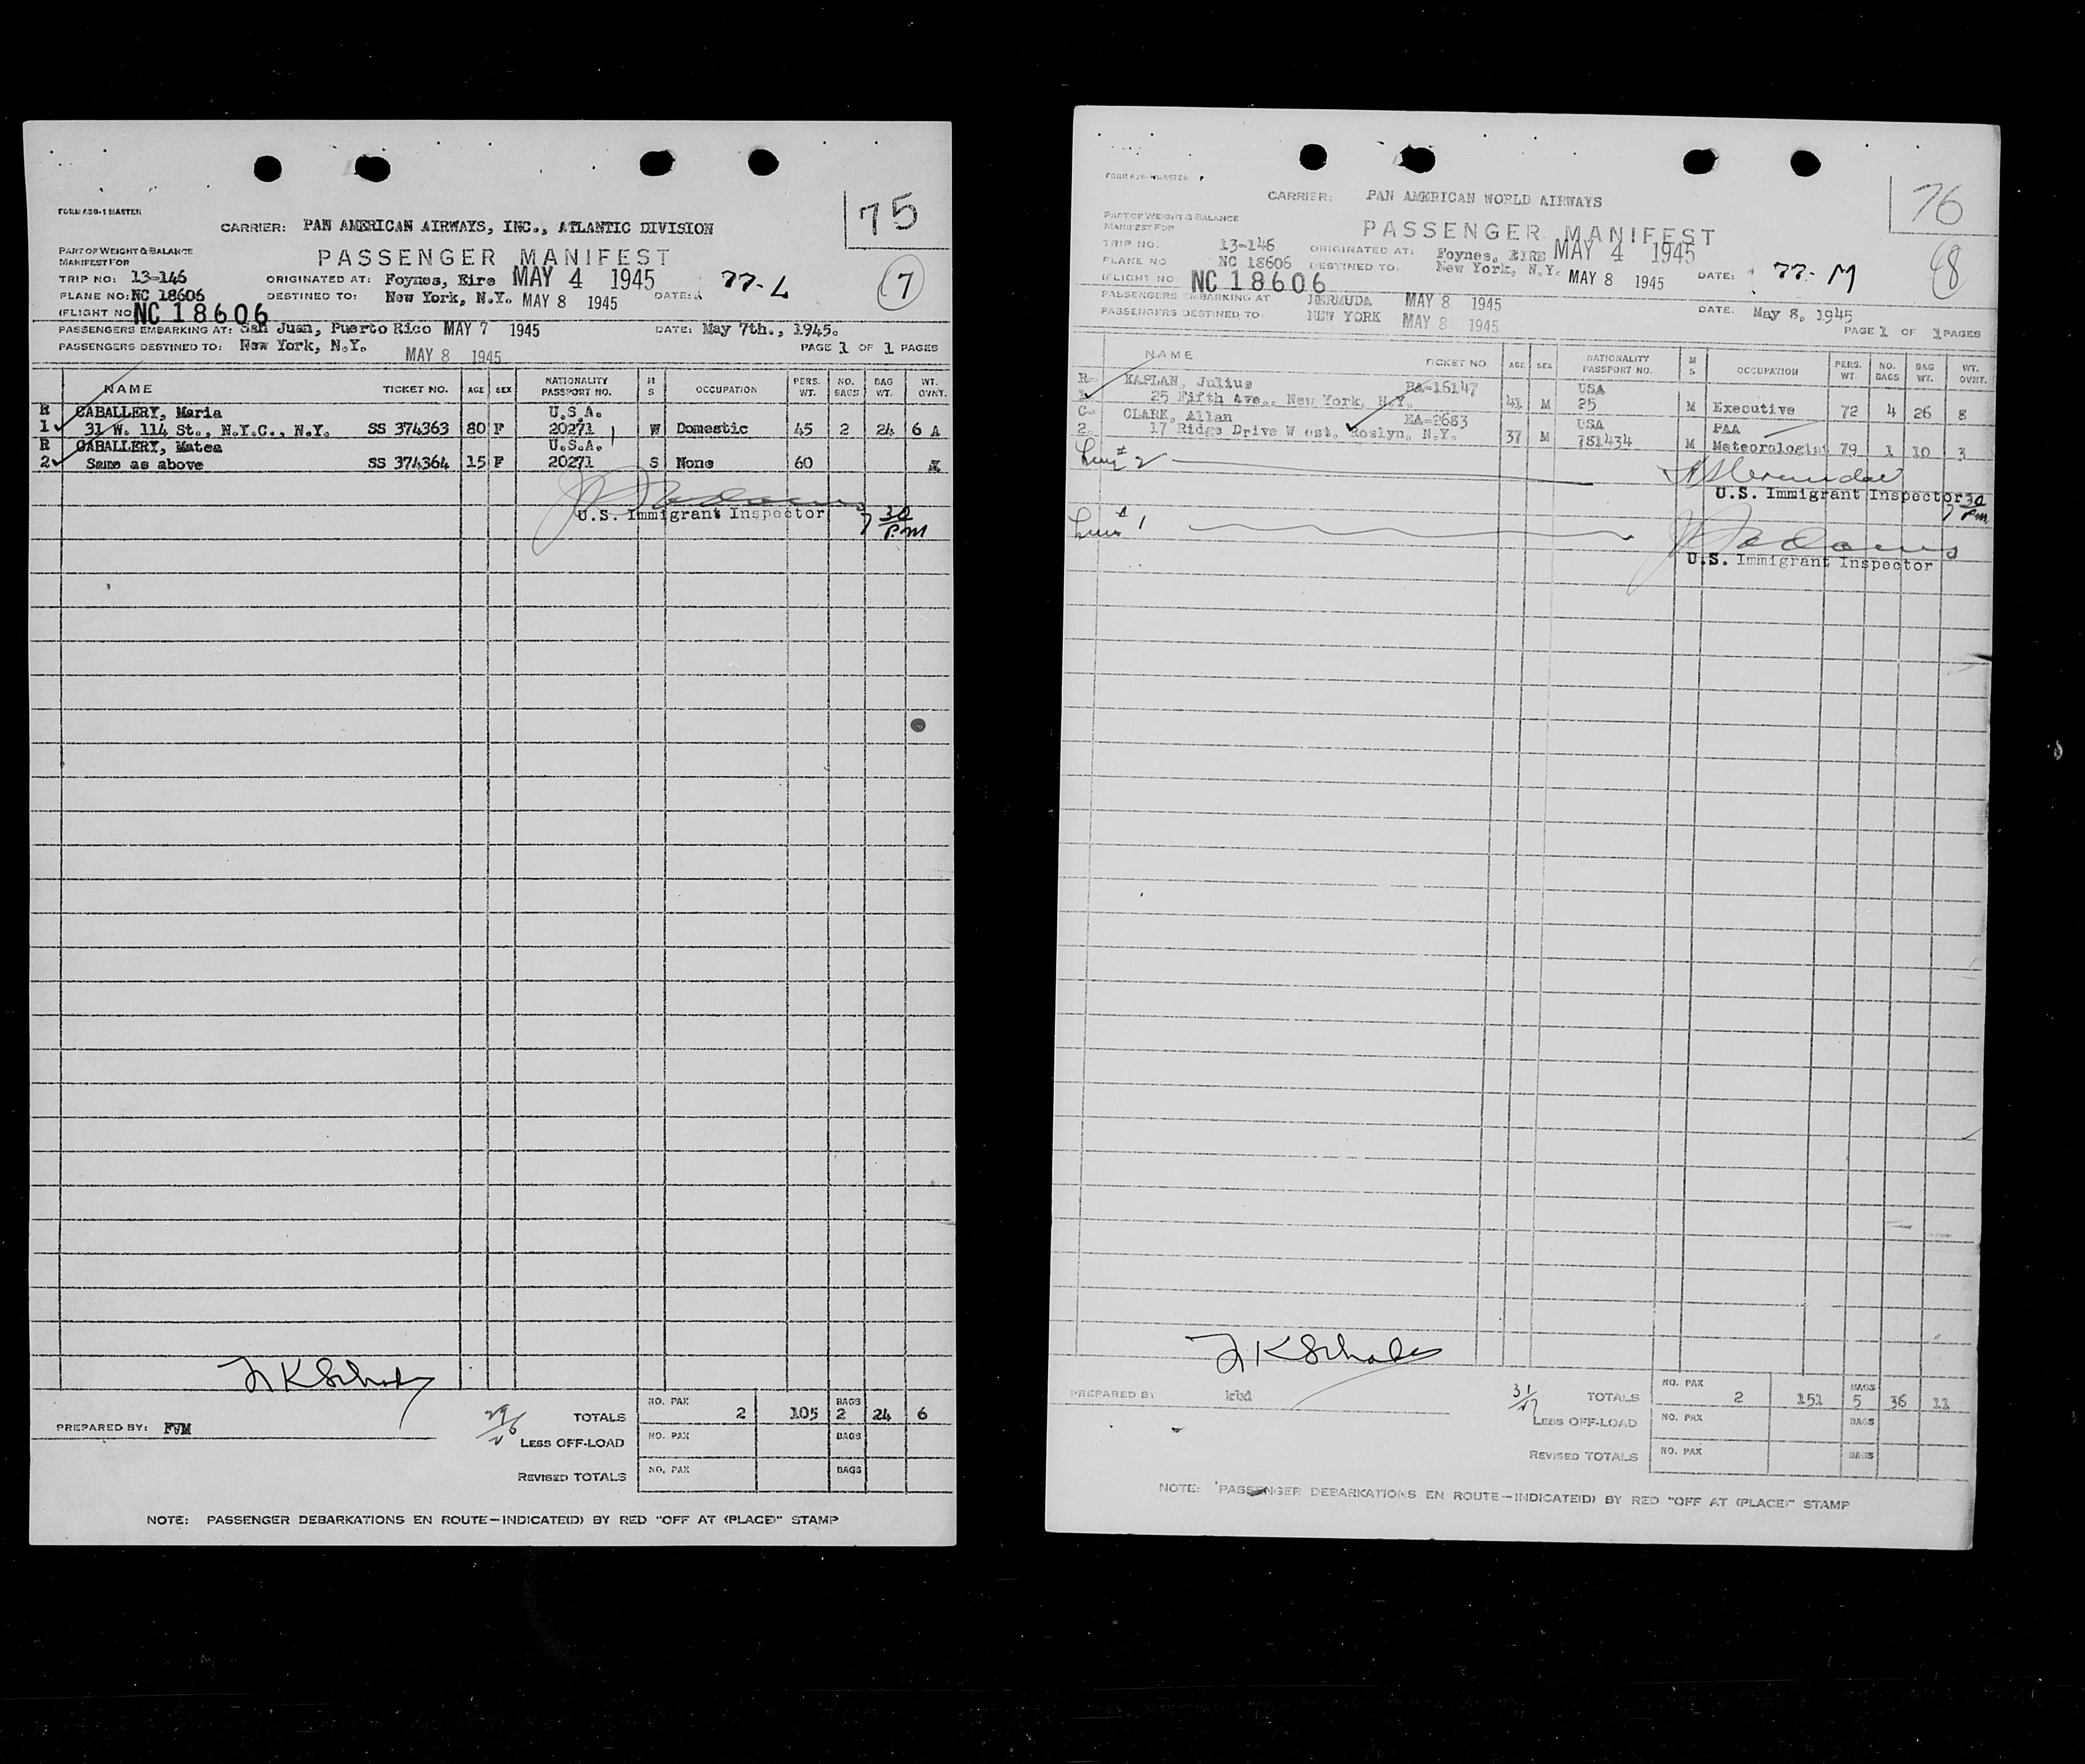 75
FORM A20-1 MASTER
CARRIER: PAN AMERICAN AIRWAYS, INC., ATLANTIC DIVISION
PART OF WEIGHT & BALANCE
MANIFEST FOR
PASSENGER MANIFEST
TRIP NO: 13-146 ORIGINATED AT: Foynes, Eire MAY 4 1945 77-L 7
PLANE NO: NC 18606 DESTINED TO: New York, N.Y. MAY 8 1945 DATE:
(FLIGHT NO NC 18606
PASSENGERS EMBARKING AT: San Juan, Puerto Rico MAY 7 1945 DATE: May 7th., 1945.
PASSENGERS DESTINED TO: New York, N.Y. MAY 8 1945 PAGE 1 OF 1 PAGES
NAME TICKET NO. AGE SEX NATIONALITY PASSPORT NO. M S OCCUPATION PERS. WT. NO. BAGS BAG WT. WT. OVNT.
R CABALLERY, Maria U.S.A.
1 31 W. 114 St., N.Y.C., N.Y. SS 374363 80 F 20271 W Domestic 45 2 24 6 A
R CABALLERY, Matea U.S.A.
2 Same as above SS 374364 15 F 20271 S None 60
U.S. Immigrant Inspector 7 30 P.m
TOTALS NO. PAX 2 105 BAGS 2 24 6
PREPARED BY: FVM
LESS OFF-LOAD NO. PAX BAGS
REVISED TOTALS NO. PAX BAGS
NOTE: PASSENGER DEBARKATIONS EN ROUTE—INDICATE(D) BY RED "OFF AT (PLACE)" STAMP
76
FORM A20-1 MASTER
CARRIER: PAN AMERICAN WORLD AIRWAYS
PART OF WEIGHT & BALANCE
MANIFEST FOR
PASSENGER MANIFEST
TRIP NO. 13-146 ORIGINATED AT: Foynes, EIRE MAY 4 1945
PLANE NO NC 18606 DESTINED TO: New York, N.Y. MAY 8 1945 DATE: 77-M 8
(FLIGHT NO. NC 18606
PASSENGERS EMBARKING AT BERMUDA MAY 8 1945 DATE: May 8, 1945
PASSENGERS DESTINED TO NEW YORK MAY 8 1945 PAGE 1 OF 1 PAGES
NAME TICKET NO. AGE SEX NATIONALITY PASSPORT NO. M S OCCUPATION PERS. WT. NO. BAGS BAG WT. WT. OVNT.
R- KAPLAN, Julius EA-16147 USA
25 Fifth Ave., New York, N.Y. 41 M 25 M Executive 72 4 26 8
C- CLARK, Allan EA-2683 USA PAA
2. 17 Ridge Drive W est, Roslyn, N.Y. 37 M 781434 M Meteorologist 79 1 10 3
Line # 2
U.S. Immigrant Inspector 7 30 Pm
Line # 1
U.S. Immigrant Inspector
PREPARED BY TOTALS NO. PAX 2 151 BAGS 5 36 11
LESS OFF-LOAD NO. PAX BAGS
REVISED TOTALS NO. PAX BAGS
NOTE: PASSENGER DEBARKATIONS EN ROUTE—INDICATE(D) BY RED "OFF AT (PLACE)" STAMP